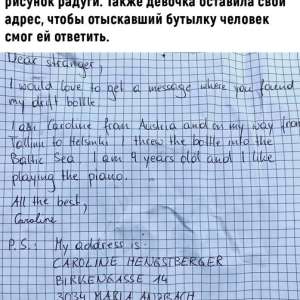 рисунок радуги. Также девочка оставила свой
адрес, чтобы отыскавший бутылку человек
смог ей ответить.
Dear stranger,
I would love to get a message where you found
my drift bottle
I am Caroline from Austria and on my way from
Tallinn to Helsinki I threw the bottle into the
Baltic Sea I am 9 years old and I like
playing the piano.
All the best,
Caroline
P.S.: My address is:
CAROLINE HENGSTBERGER
BIRKENGASSE 14
3034 MARIA ANZBACH